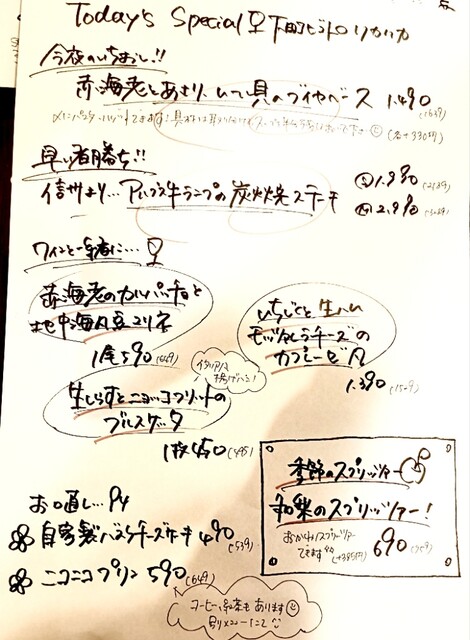 Today's Special 下町ビストロ
今夜のいちおし!!
赤海老とあさり、ムール貝のブイヤベース 1.490 (1639)
(各+330円)
早い者勝ち!!
信州より… アルプス牛ランプの炭火焼ステーキ
Ⓢ1.980 (2189)
Ⓜ2.990 (3289)
ワインと一緒に…
赤海老のカルパッチョと
地中海風豆マリネ
1尾590 (649)
いちじくと生ハム
モッツァレラチーズの
カプレーゼ
1.390 (1529)
イタリアは
揚げパン!
生しらすとニョッコフリットの
ブルスケッタ
1枚450 (495)
季節のスプリッツァー
和梨のスプリッツァー!
おかわりスプリッツァー
できます (+385円)
690 (759)
お口直し…
自家製バスクチーズケーキ 490 (539)
ニコニコプリン 590 (649)
コーヒー、紅茶もあります
別メニューにて